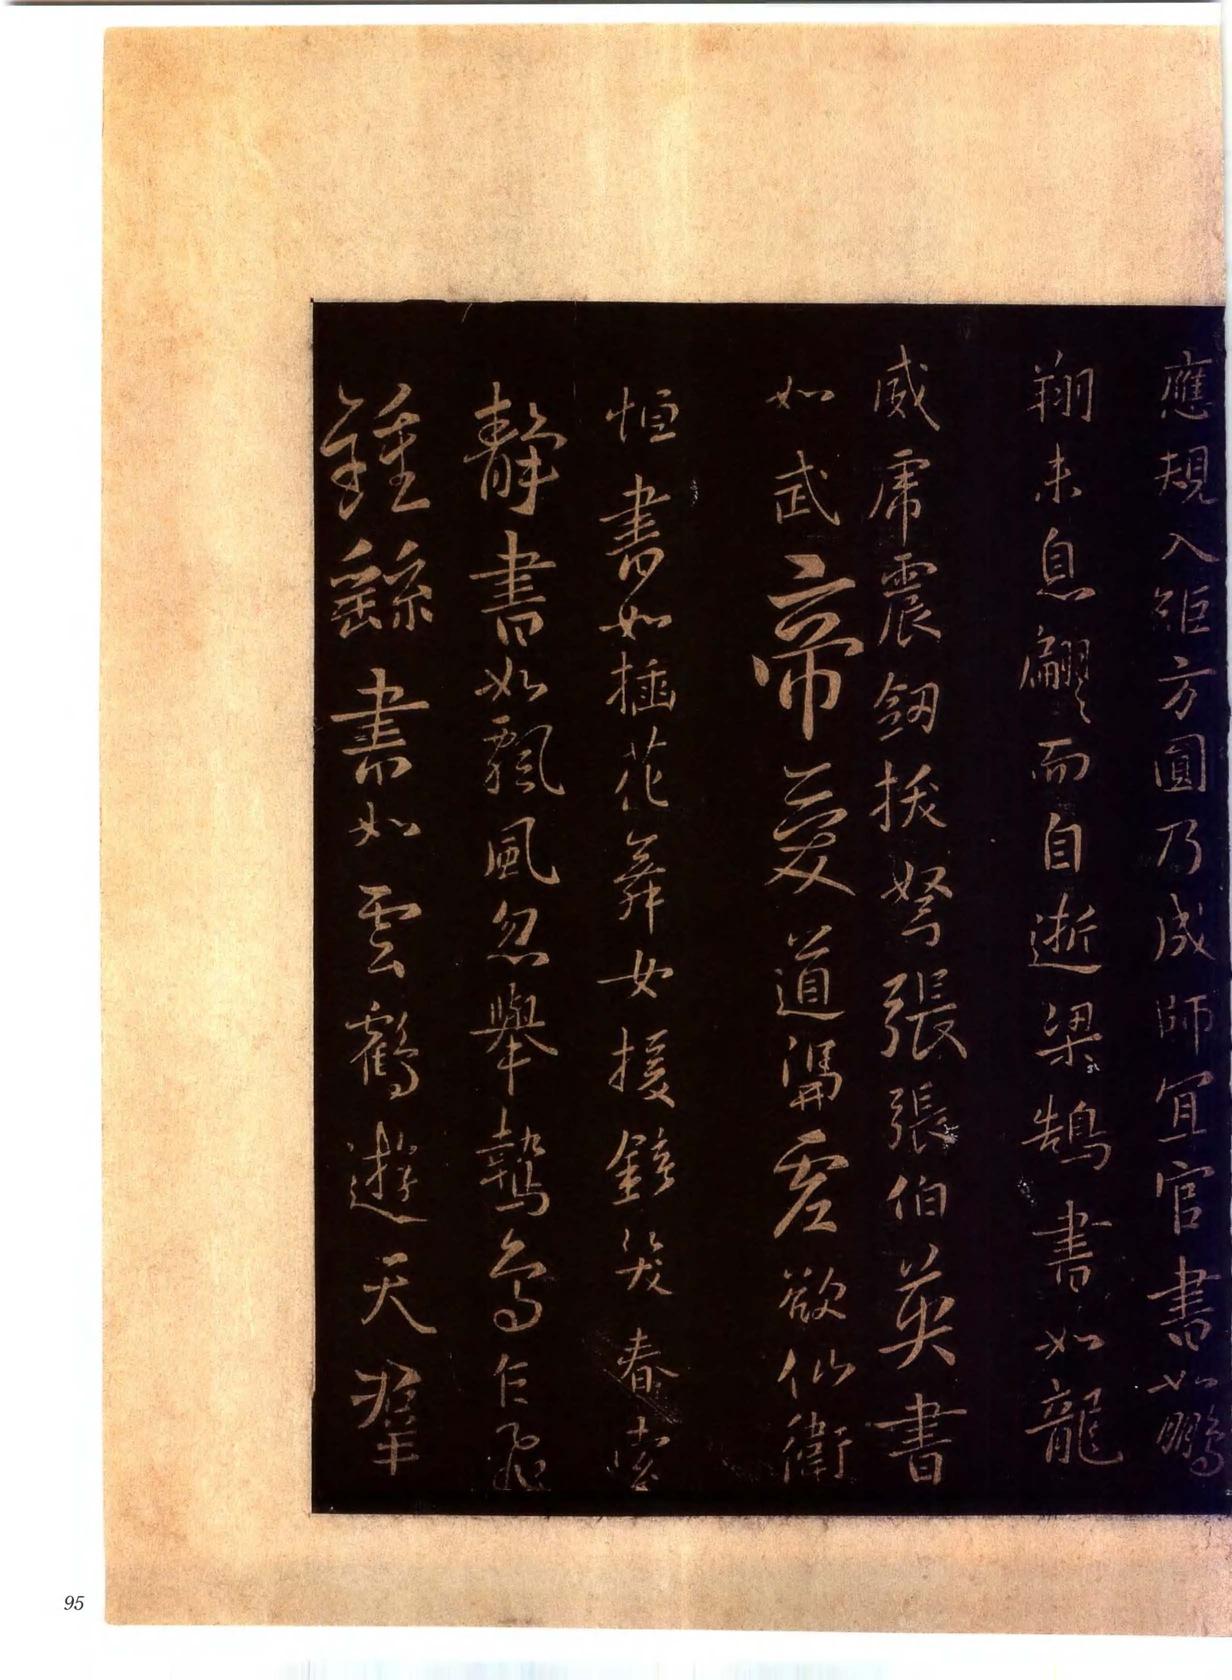 應規入矩方圓乃成師宜官書如鵬
翔未息翩翩而自逝梁鵠書如龍
威虎震劔拔弩張張伯英書
如武帝愛道馮虛欲仙衛
恒書如插花舞女援鏡笑春索
靖書如飄風忽舉鷙鳥乍飛
鍾繇書如雲鶴遊天群
95